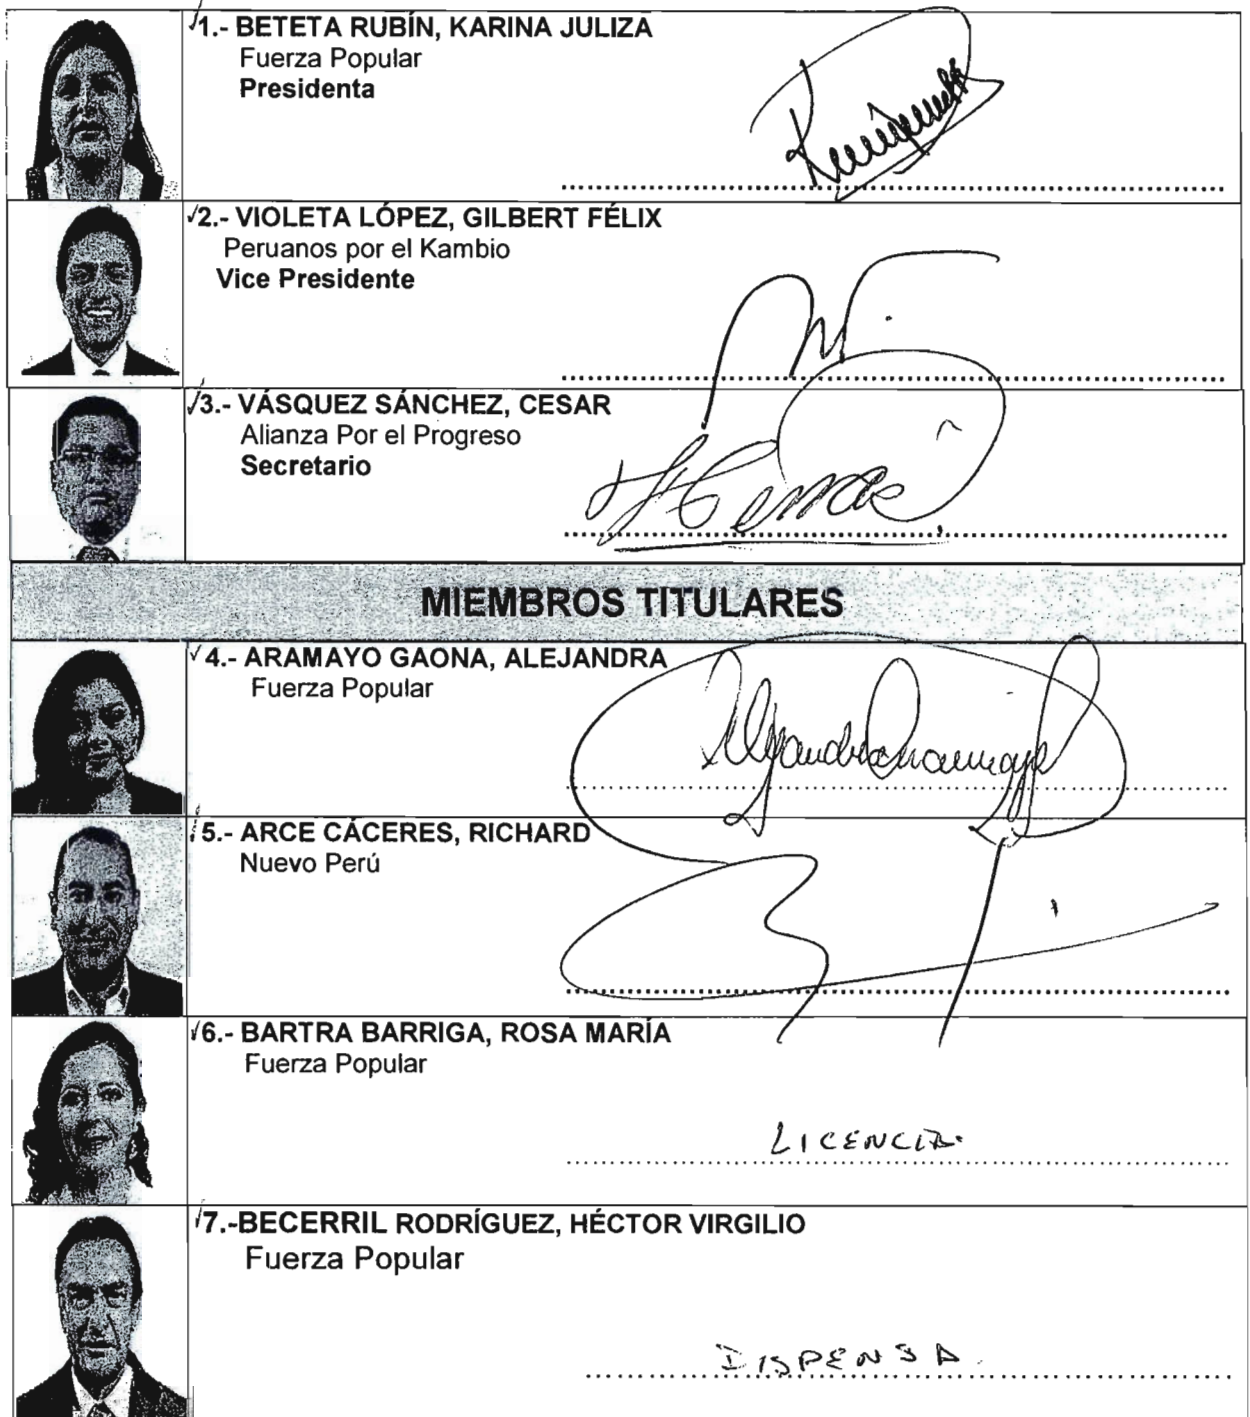 1.- BETETA RUBÍN, KARINA JULIZA
Fuerza Popular
Presidenta
2.- VIOLETA LÓPEZ, GILBERT FÉLIX
Peruanos por el Kambio
Vice Presidente
3.- VÁSQUEZ SÁNCHEZ, CESAR
Alianza Por el Progreso
Secretario
MIEMBROS TITULARES
4.- ARAMAYO GAONA, ALEJANDRA
Fuerza Popular
5.- ARCE CÁCERES, RICHARD
Nuevo Perú
6.- BARTRA BARRIGA, ROSA MARÍA
Fuerza Popular
LICENCIA
7.-BECERRIL RODRÍGUEZ, HÉCTOR VIRGILIO
Fuerza Popular
DISPENSA